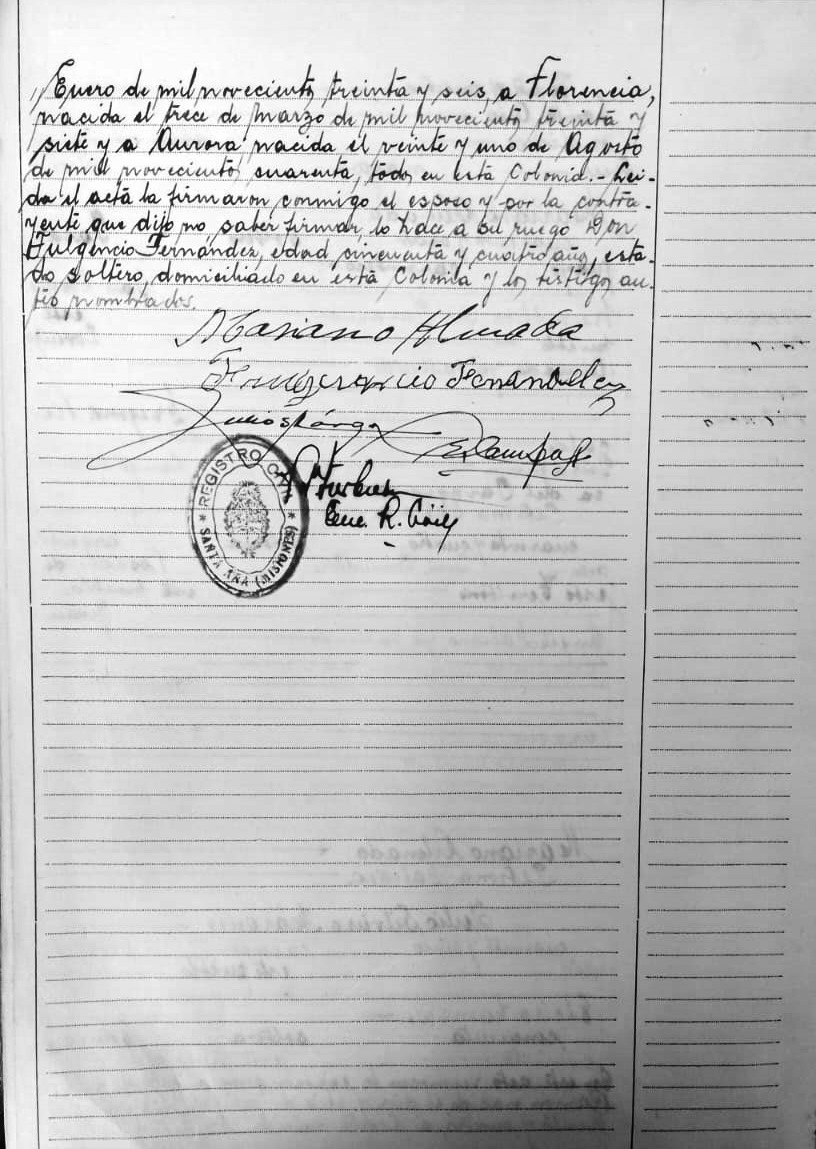 Enero de mil novecientos treinta y seis, a Florencia,
nacida el trece de Marzo de mil novecientos treinta y
siete y a Aurora nacida el veinte y uno de Agosto
de mil novecientos cuarenta, todos en esta Colonia.- Lei-
da el acta la firmaron conmigo el esposo y por la contra-
yente que dijo no saber firmar, lo hace a su ruego Don
Fulgencio Fernández, edad cincuenta y cuatro años, esta-
do soltero, domiciliado en esta Colonia y los testigos an-
tes nombrados.
Mariano Almada
Fernandez
REGISTRO CIVIL
SANTA ANA (MISIONES)